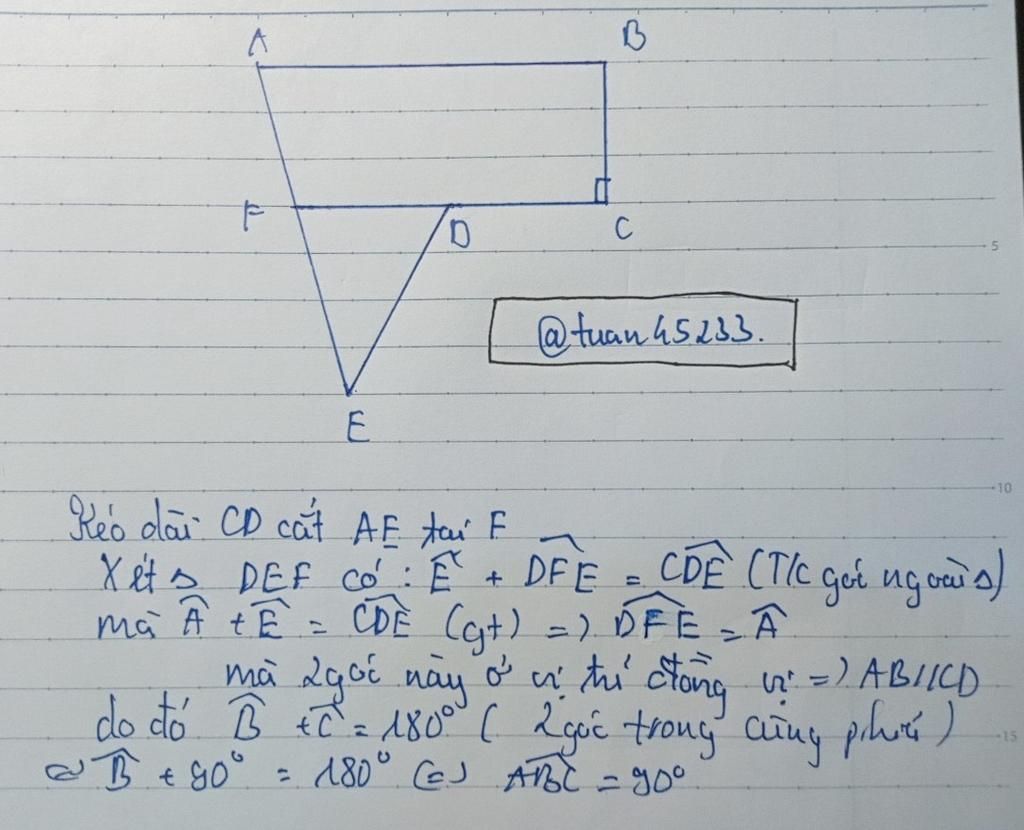 A
B
F
D
C
5
@tuan45233.
E
10
Kéo dài CD cắt AE tại F
Xét Δ DEF có: Ê + DFE = CDE (T/c góc ngoài Δ)
mà Â + Ê = CDE (gt) => DFE = Â
mà 2 góc này ở vị trí đồng vị => AB//CD
do đó B̂ + Ĉ = 180° ( 2 góc trong cùng phía )
15
<=> B̂ + 90° = 180° <=> ABC = 90°